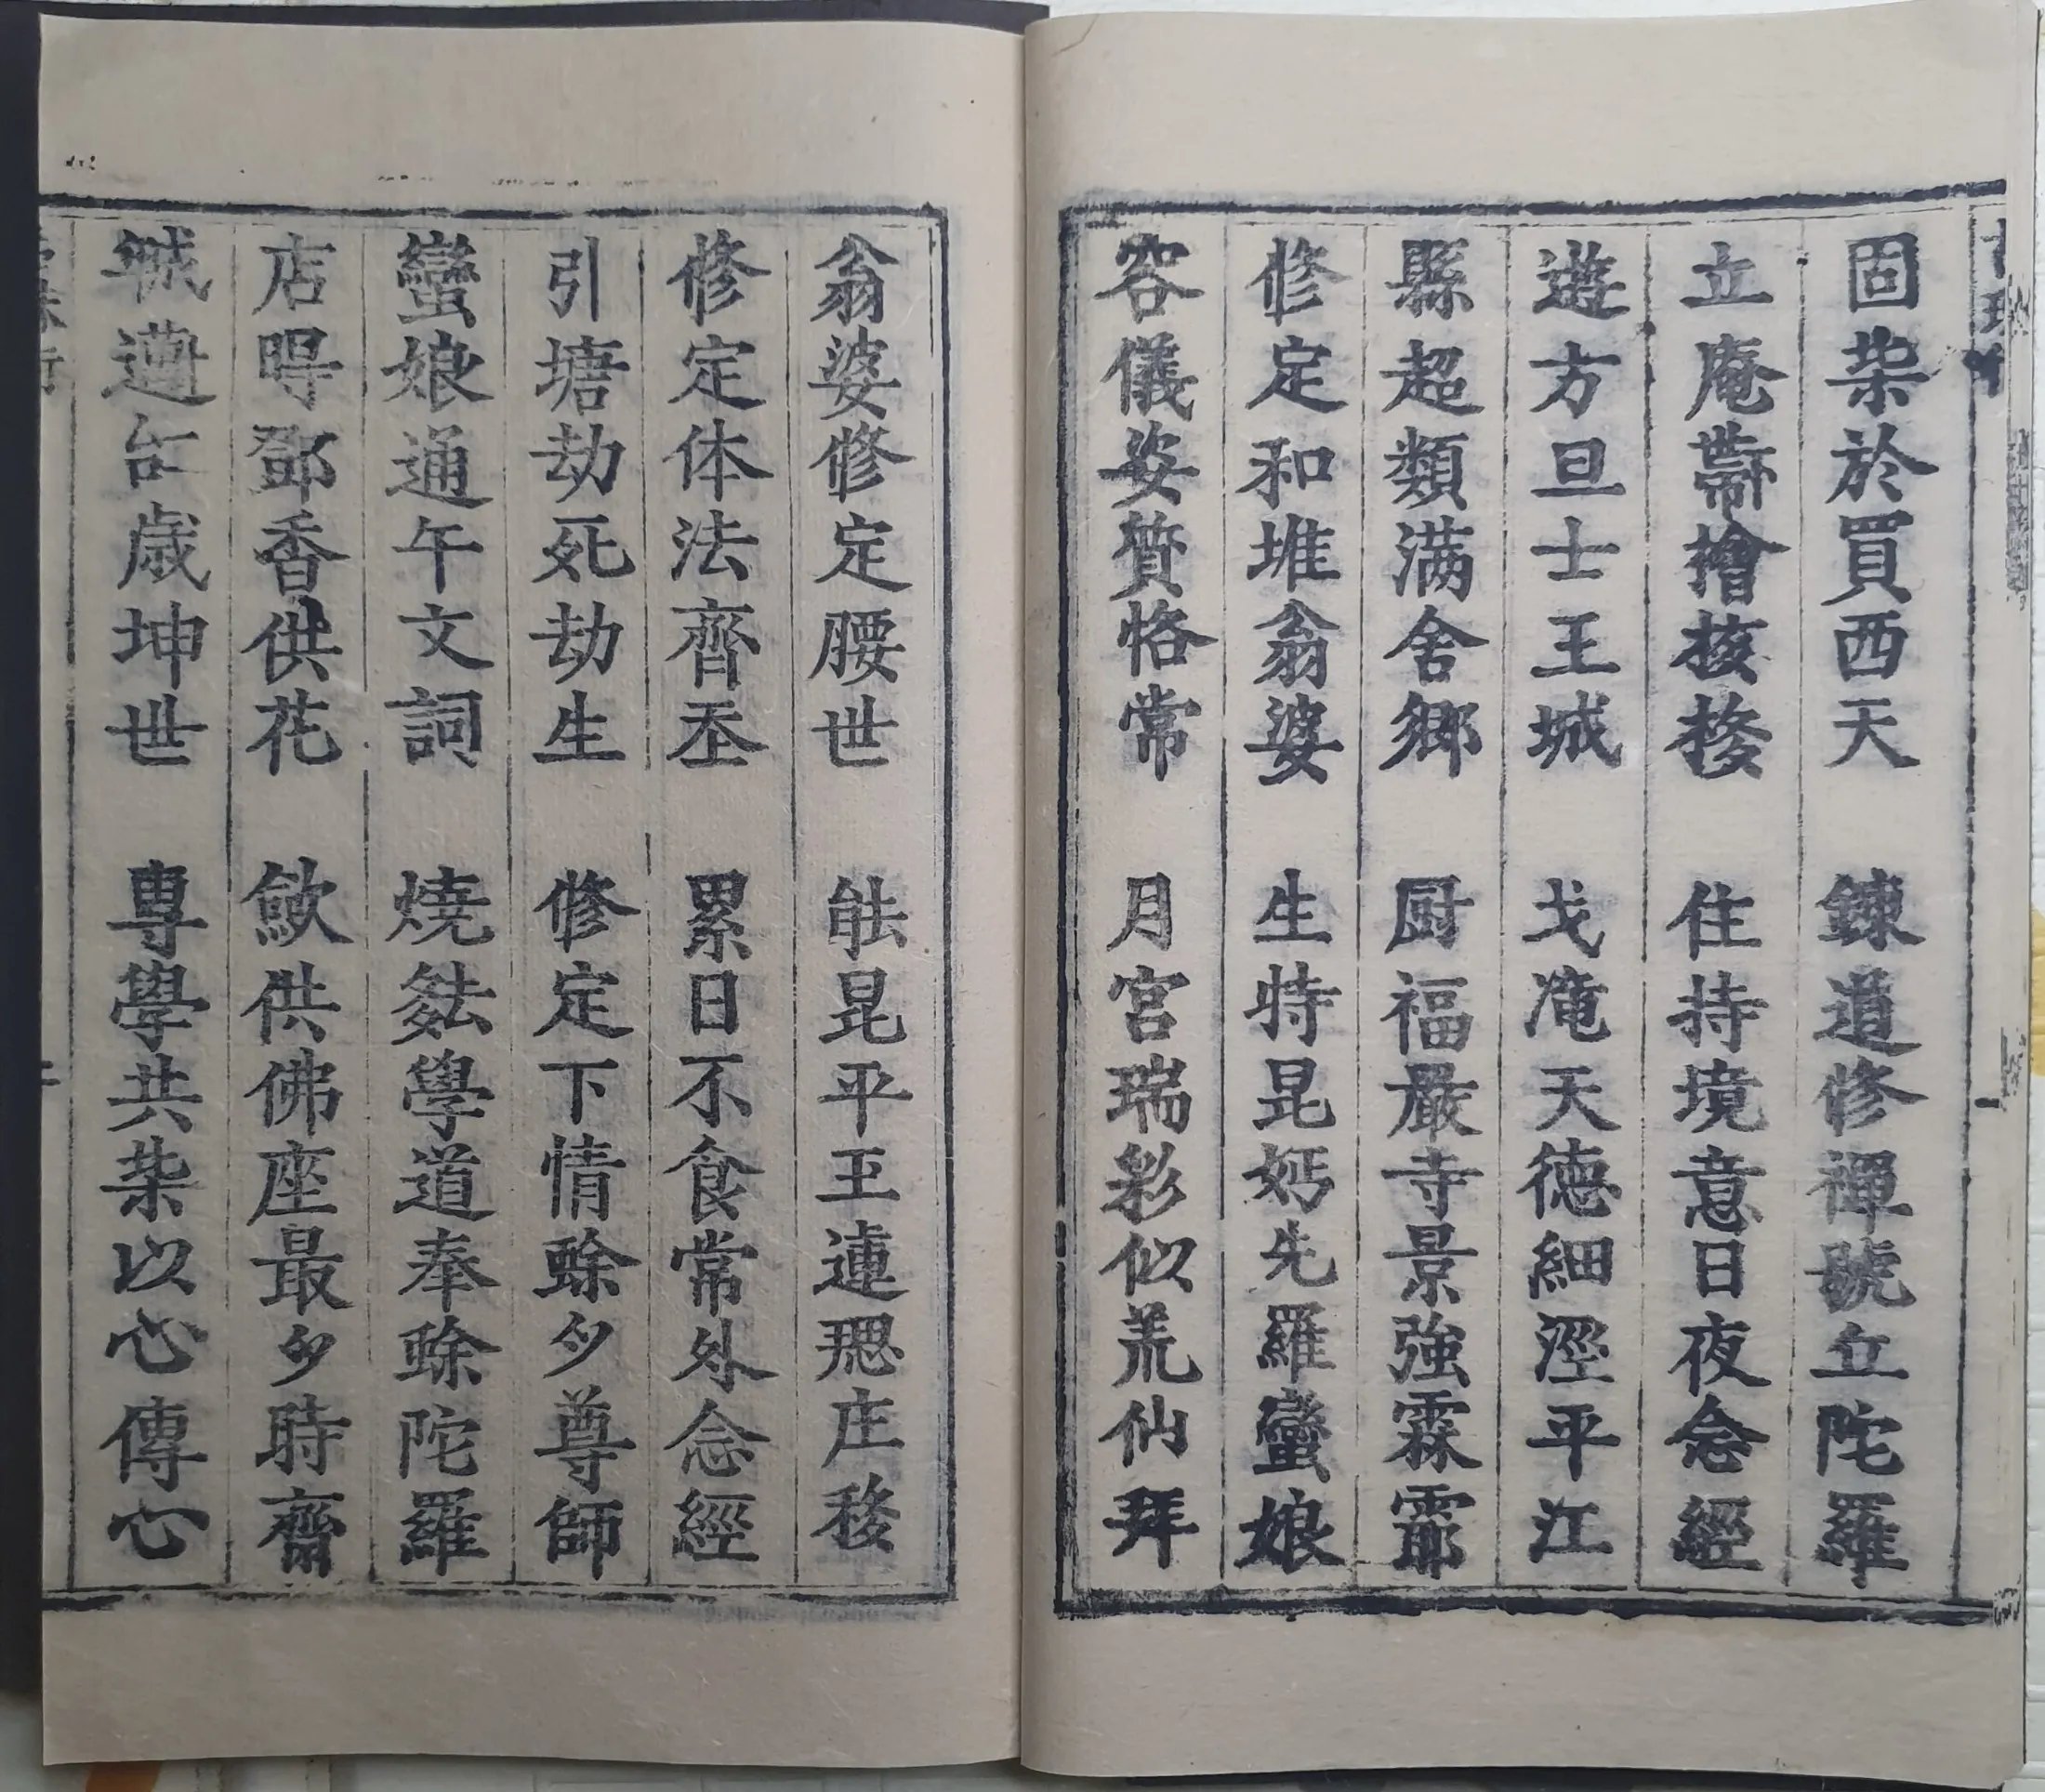 固柴於買西天 鍊道修禪號立陀羅
立庵帶擔核移 住持境意日夜念經
遊方旦士王城 戈庵天德細涇平江
縣超類满舍鄉 厨福嚴寺景強霖
修定和堆翁婆 生特昆妈先羅蠻娘
容儀姿質恪常 月宮瑞彩似荒仙拜
翁婆修定腰世 昆平王連庄移
修定体法齊丕 累日不食常外念經
引塘劫死劫生 修定下情賒夕尊師
蠻娘通午文詞 燒學道奉賒陀羅
店㝵鄧香供花 歛供佛座最夕時齋
誠邁歲坤世 專學共柴以心傳心